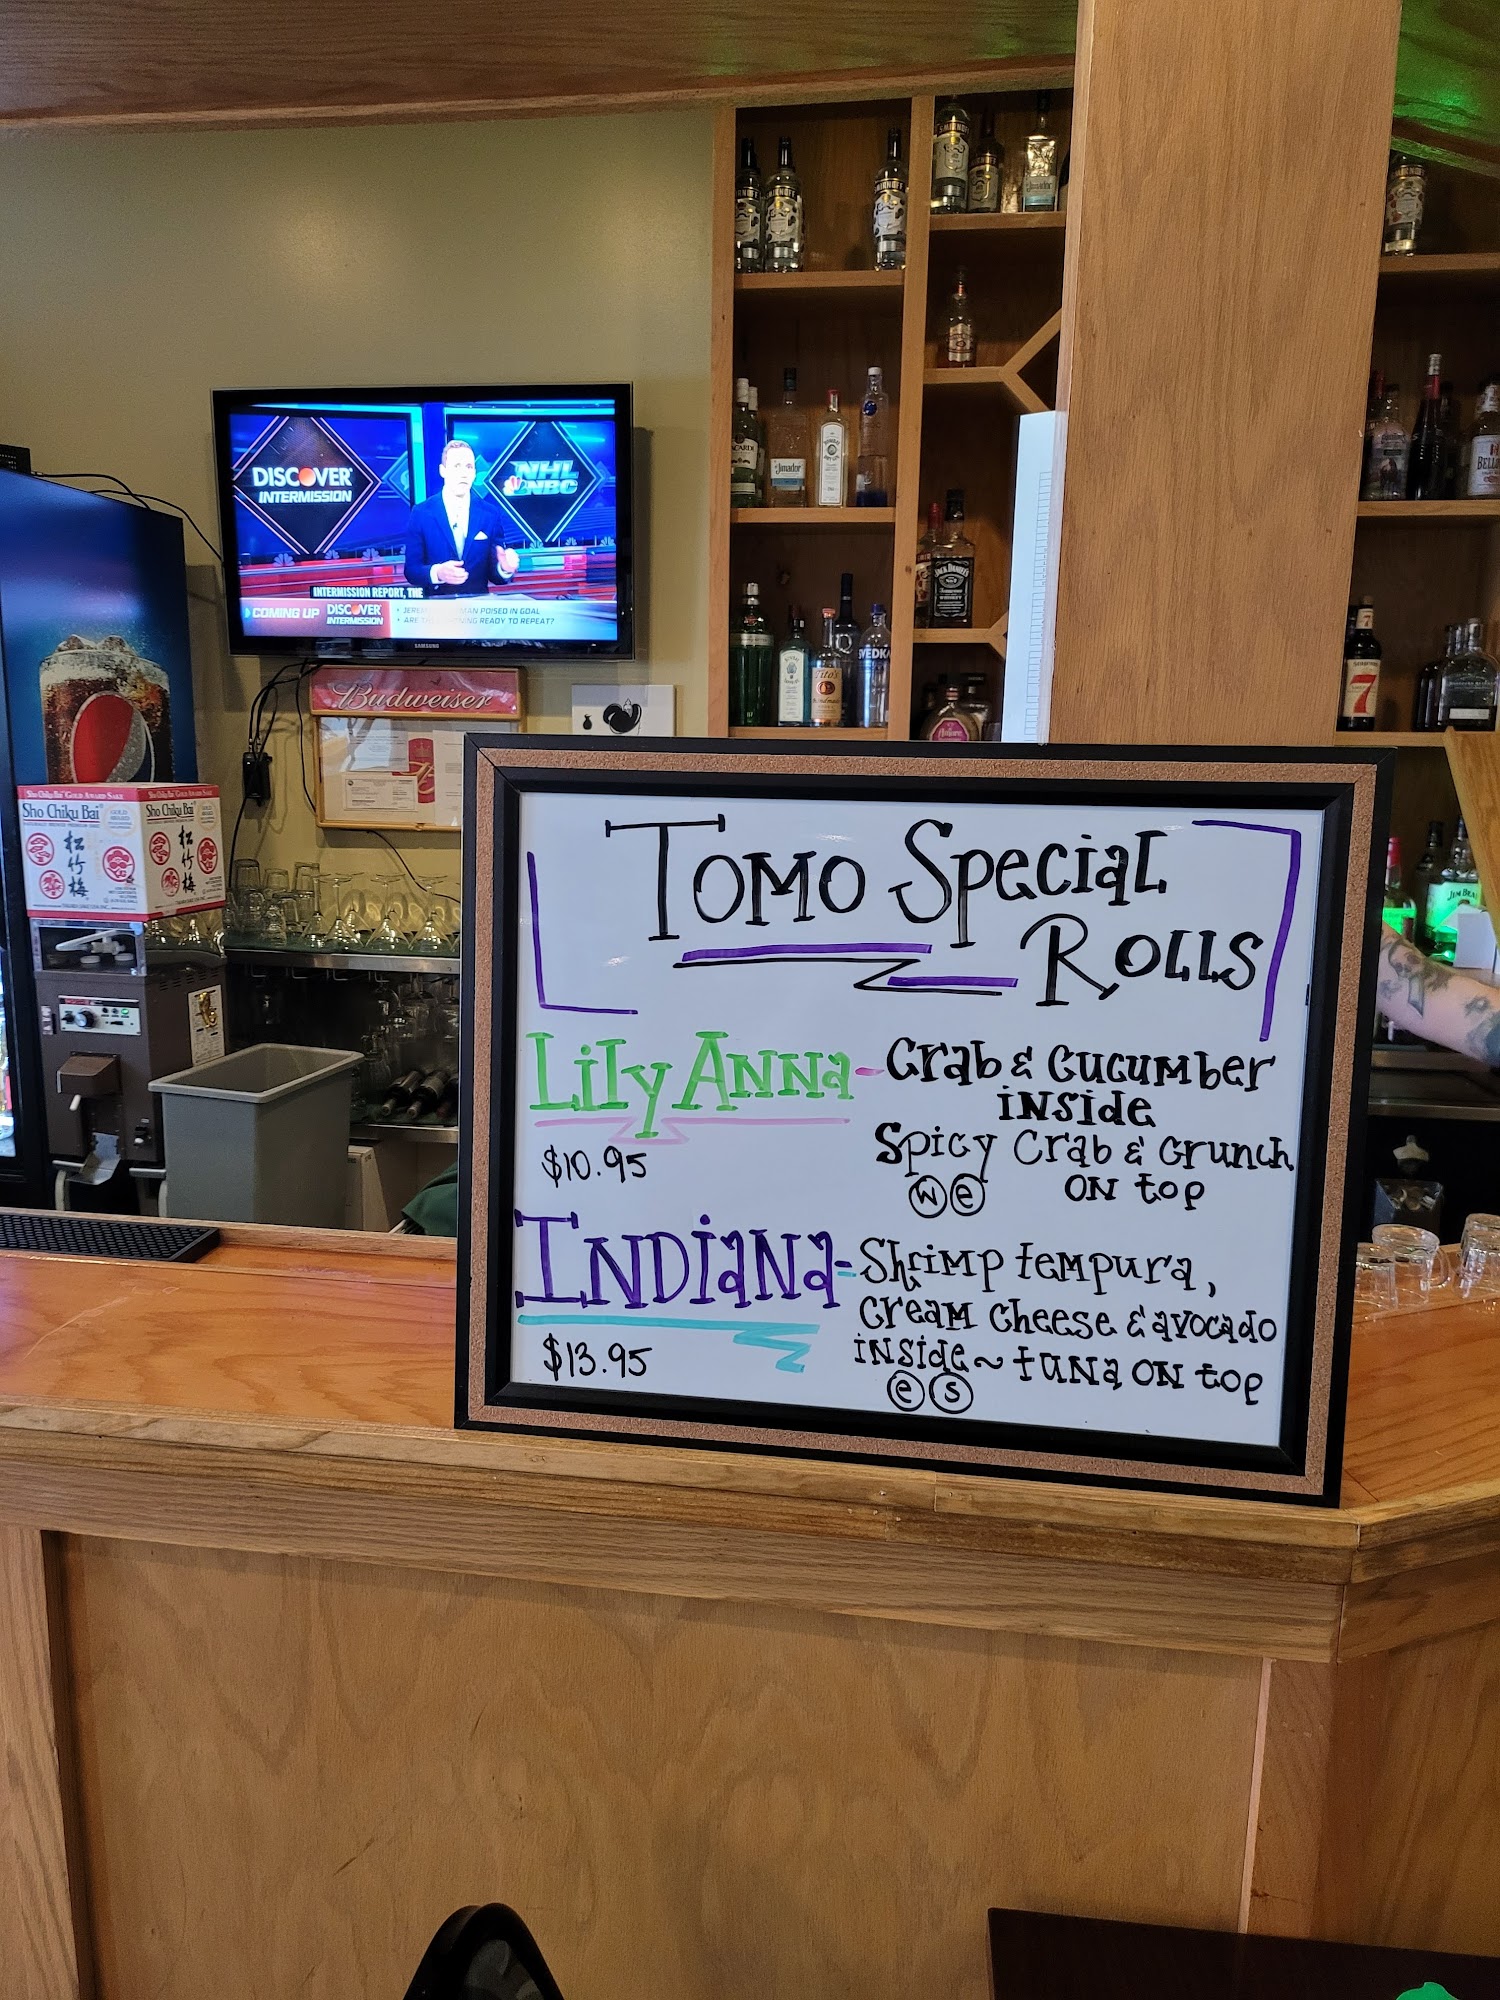 SMIRNOFF
SMIRNOFF
SMIRNOFF
Jimador
DISCOVER
INTERMISSION
NHL
NBC
BACARDI
Jimador
INTERMISSION REPORT, THE
COMING UP
DISCOVER
INTERMISSION
POISED IN GOAL
READY TO REPEAT?
SAMSUNG
JACK DANIEL'S
SVEDKA
Tito's
Handmade
7
Budweiser
Sho Chiku Bai GOLD AWARD SAKE
Sho Chiku Bai
松竹梅
Sho Chiku Bai
松竹梅
JIM BEAM
TOMO SPECIAL
ROLLS
Lily Anna - Crab & Cucumber
inside
Spicy Crab & Crunch
on top
$10.95
W e
Indiana - Shrimp tempura,
cream cheese & avocado
inside ~ tuna on top
$13.95
e s